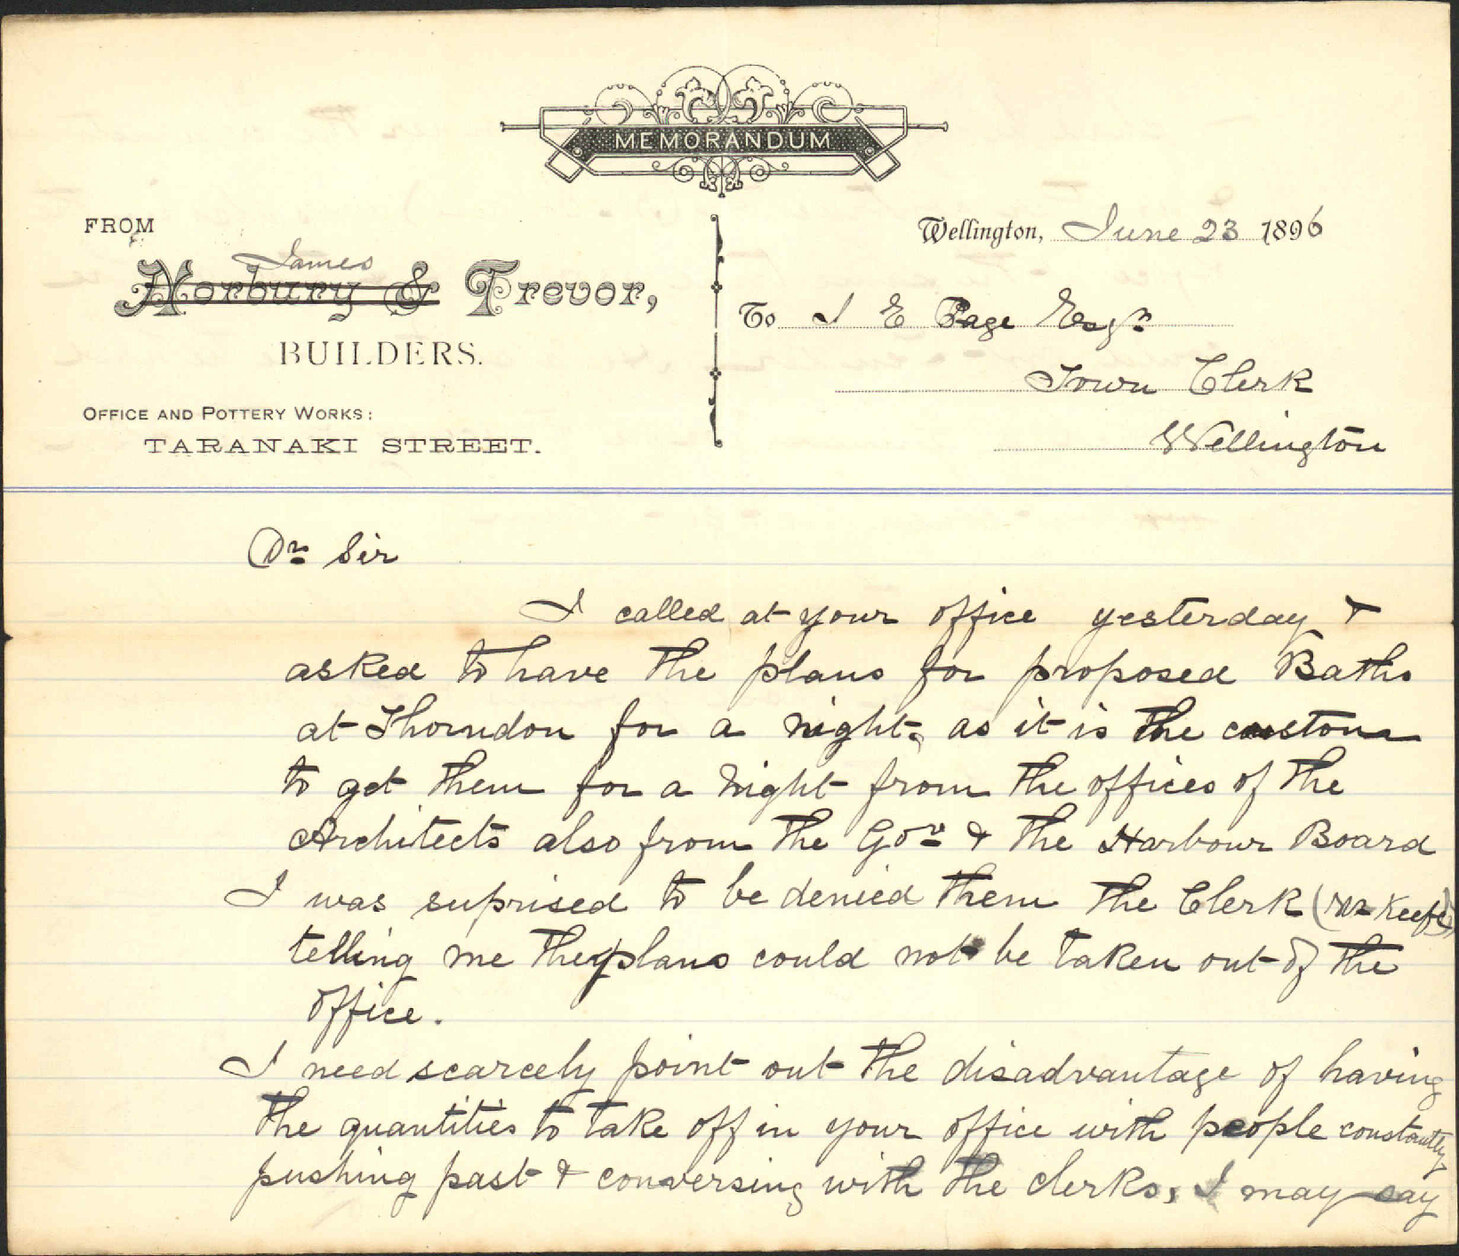 MEMORANDUM
FROM
Wellington, June 23 1896
James
Norbury & Trevor,
BUILDERS.
OFFICE AND POTTERY WORKS:
TARANAKI STREET.
To J E Page Esqr
Town Clerk
Wellington
Dr Sir
I called at your office yesterday &
asked to have the plans for proposed Baths
at Thorndon for a night, as it is the custom
to get them for a night from the offices of the
Architects also from the Govt & the Harbour Board
I was suprised to be denied them the Clerk (Mr Keefe)
telling me the plans could not be taken out of the
office.
I need scarcely point out the disadvantage of having
the quantities to take off in your office with people constantly
pushing past & conversing with the clerks, I may say